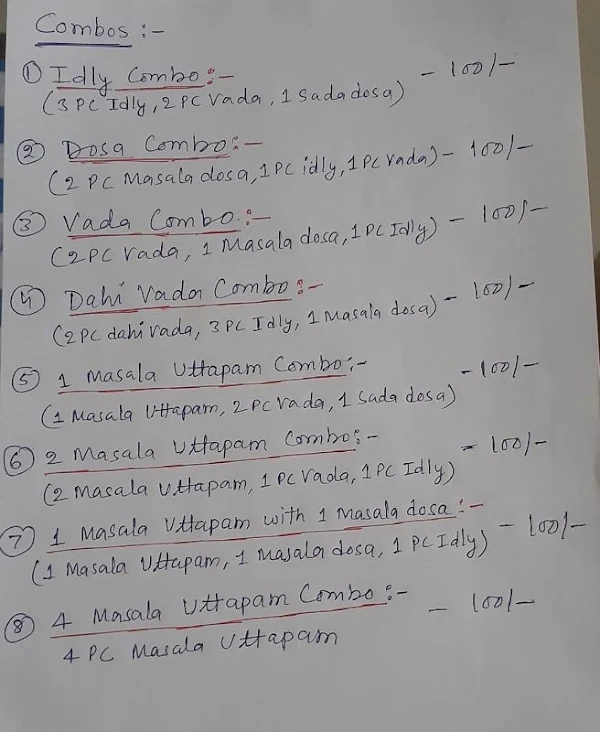 Combos :-
① Idly Combo :- - 100/-
(3 PC Idly, 2 PC Vada, 1 Sada dosa)
② Dosa Combo :-
(2 PC Masala dosa, 1 PC idly, 1 PC vada) - 100/-
③ Vada Combo :-
(2 PC vada, 1 Masala dosa, 1 PC Idly) - 100/-
④ Dahi Vada Combo :-
(2 PC dahi vada, 3 PC Idly, 1 Masala dosa) - 100/-
⑤ 1 Masala Uttapam Combo :- - 100/-
(1 Masala Uttapam, 2 PC vada, 1 Sada dosa)
⑥ 2 Masala Uttapam Combo :- - 100/-
(2 Masala Uttapam, 1 PC Vada, 1 PC Idly)
⑦ 1 Masala Uttapam with 1 Masala dosa :-
(1 Masala Uttapam, 1 Masala dosa, 1 PC Idly) - 100/-
⑧ 4 Masala Uttapam Combo :- - 100/-
4 PC Masala Uttapam